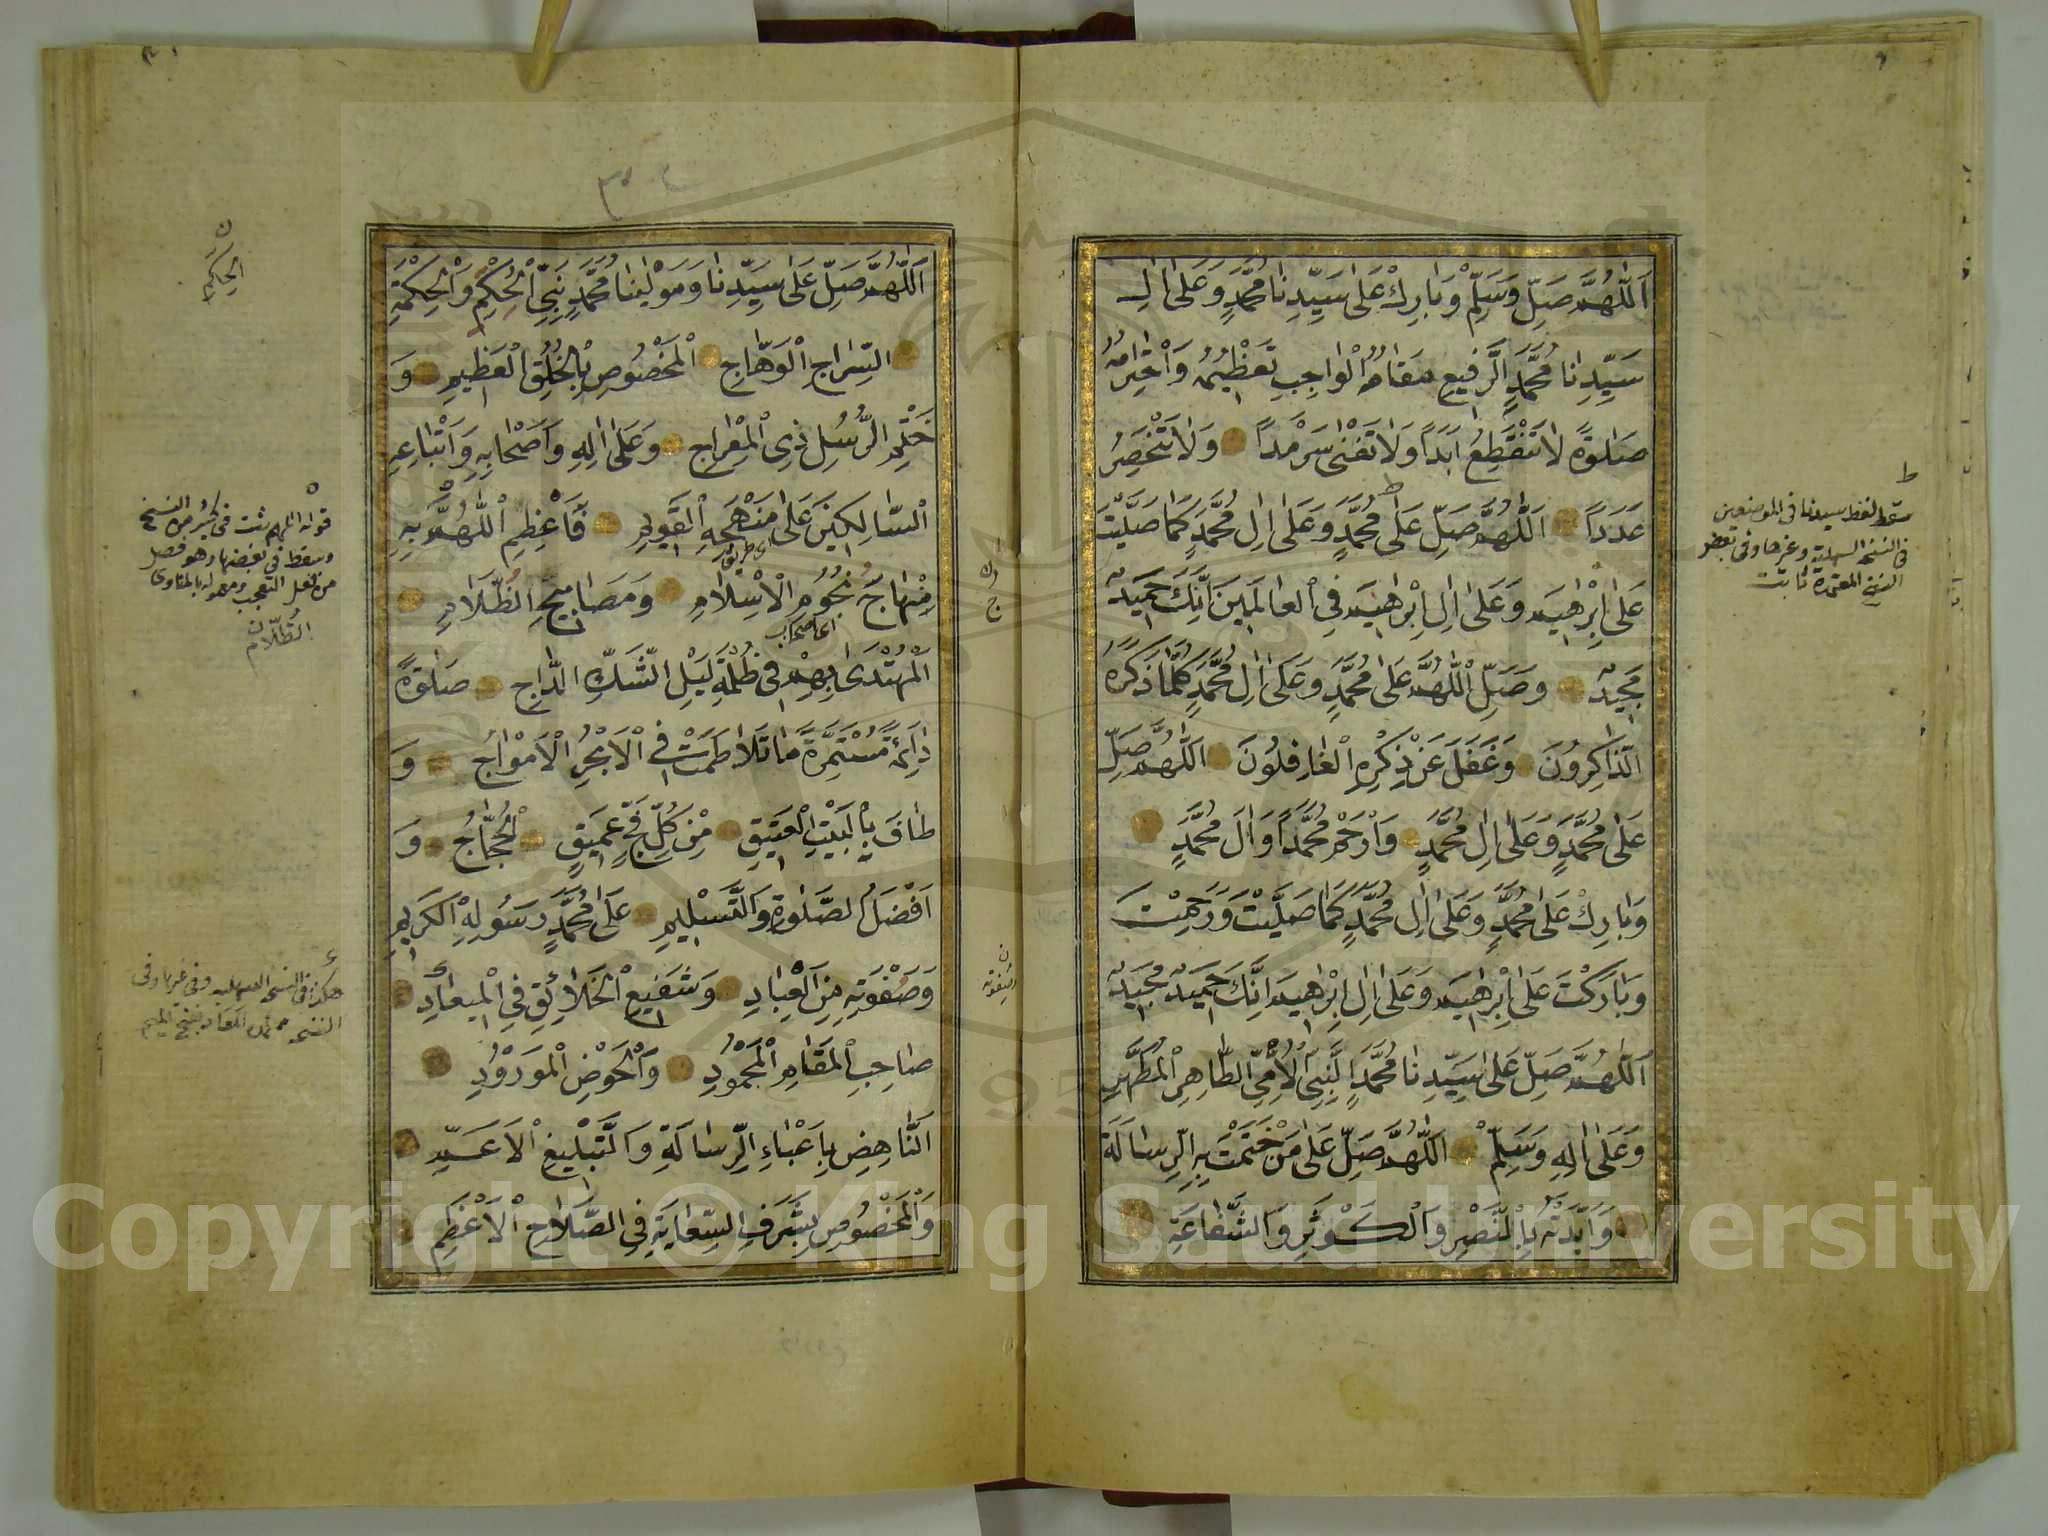 اَللّٰهُمَّ صَلِّ وَسَلِّمْ وَبَارِكْ عَلٰى سَيِّدِنَا مُحَمَّدٍ وَعَلٰى اٰلِ
سَيِّدِنَا مُحَمَّدٍ الرَّفِيعِ مَقَامُهُ الْوَاجِبِ تَعْظِيمُهُ وَاحْتِرَامُهُ
صَلٰوةً لَا تَنْقَطِعُ اَبَدًا وَلَا تَفْنٰى سَرْمَدًا وَلَا تَنْحَصِرُ
عَدَدًا اَللّٰهُمَّ صَلِّ عَلٰى مُحَمَّدٍ وَعَلٰى اٰلِ مُحَمَّدٍ كَمَا صَلَّيْتَ
عَلٰى اِبْرٰهِيمَ وَعَلٰى اٰلِ اِبْرٰهِيمَ فِي الْعَالَمِينَ اِنَّكَ حَمِيدٌ
مَجِيدٌ وَصَلِّ اللّٰهُمَّ عَلٰى مُحَمَّدٍ وَعَلٰى اٰلِ مُحَمَّدٍ كُلَّمَا ذَكَرَهُ
الذَّاكِرُونَ وَغَفَلَ عَنْ ذِكْرِهِ الْغَافِلُونَ اَللّٰهُمَّ صَلِّ
عَلٰى مُحَمَّدٍ وَعَلٰى اٰلِ مُحَمَّدٍ وَارْحَمْ مُحَمَّدًا وَاٰلَ مُحَمَّدٍ
وَبَارِكْ عَلٰى مُحَمَّدٍ وَعَلٰى اٰلِ مُحَمَّدٍ كَمَا صَلَّيْتَ وَرَحِمْتَ
وَبَارَكْتَ عَلٰى اِبْرٰهِيمَ وَعَلٰى اٰلِ اِبْرٰهِيمَ اِنَّكَ حَمِيدٌ مَجِيدٌ
اَللّٰهُمَّ صَلِّ عَلٰى سَيِّدِنَا مُحَمَّدٍ النَّبِيِّ الْاُمِّيِّ الطَّاهِرِ الْمُطَهَّرِ
وَعَلٰى اٰلِهِ وَسَلِّمْ اَللّٰهُمَّ صَلِّ عَلٰى مَنْ خَتَمْتَ بِهِ الرِّسَالَةَ
وَاَيَّدْتَهُ بِالنَّصْرِ وَالْكَوْثَرِ وَالشَّفَاعَةِ
ط
سقط لفظ سيدنا في الموضعين
في النسخة السهلية وغيرها وفي بعض
النسخ المعتمدة ثابت
اَللّٰهُمَّ صَلِّ عَلٰى سَيِّدِنَا وَمَوْلٰينَا مُحَمَّدٍ نَبِيِّ الْحُكْمِ وَالْحِكْمَةِ
السِّرَاجِ الْوَهَّاجِ الْمَخْصُوصِ بِالْخُلُقِ الْعَظِيمِ وَ
خَتْمِ الرُّسُلِ ذِي الْمِعْرَاجِ وَعَلٰى اٰلِهِ وَاَصْحَابِهِ وَاَتْبَاعِهِ
السَّالِكِينَ عَلٰى مَنْهَجِهِ الْقَوِيمِ فَاَعْظِمِ اللّٰهُمَّ بِهِ
مِنْهَاجَ نُجُومِ الْاِسْلَامِ وَمَصَابِيحِ الظَّلَامِ
الْمُهْتَدٰى بِهِمْ فِي ظُلْمَةِ لَيْلِ الشَّكِّ الدَّاجِ صَلٰوةً
دَائِمَةً مُسْتَمِرَّةً مَا تَلَاطَمَتْ فِي الْاَبْحُرِ الْاَمْوَاجُ وَ
طَافَ بِالْبَيْتِ الْعَتِيقِ مِنْ كُلِّ فَجٍّ عَمِيقٍ الْحُجَّاجُ وَ
اَفْضَلُ الصَّلٰوةِ وَالتَّسْلِيمِ عَلٰى مُحَمَّدٍ رَسُولِهِ الْكَرِيمِ
وَصَفْوَتِهِ مِنَ الْعِبَادِ وَشَفِيعِ الْخَلَائِقِ فِي الْمِيعَادِ
صَاحِبِ الْمَقَامِ الْمَحْمُودِ وَالْحَوْضِ الْمَوْرُودِ
النَّاهِضِ بِاَعْبَاءِ الرِّسَالَةِ وَالتَّبْلِيغِ الْاَعَمِّ
وَالْمَخْصُوصِ بِشَرَفِ السِّعَايَةِ فِي الصَّلَاحِ الْاَعْظَمِ
قوله اللهم ثبت في كثير من النسخ
وسقط في بعضها وهو فصل
من فعل التعجب ومعموله بالمنادى
Copyright © King Saud University